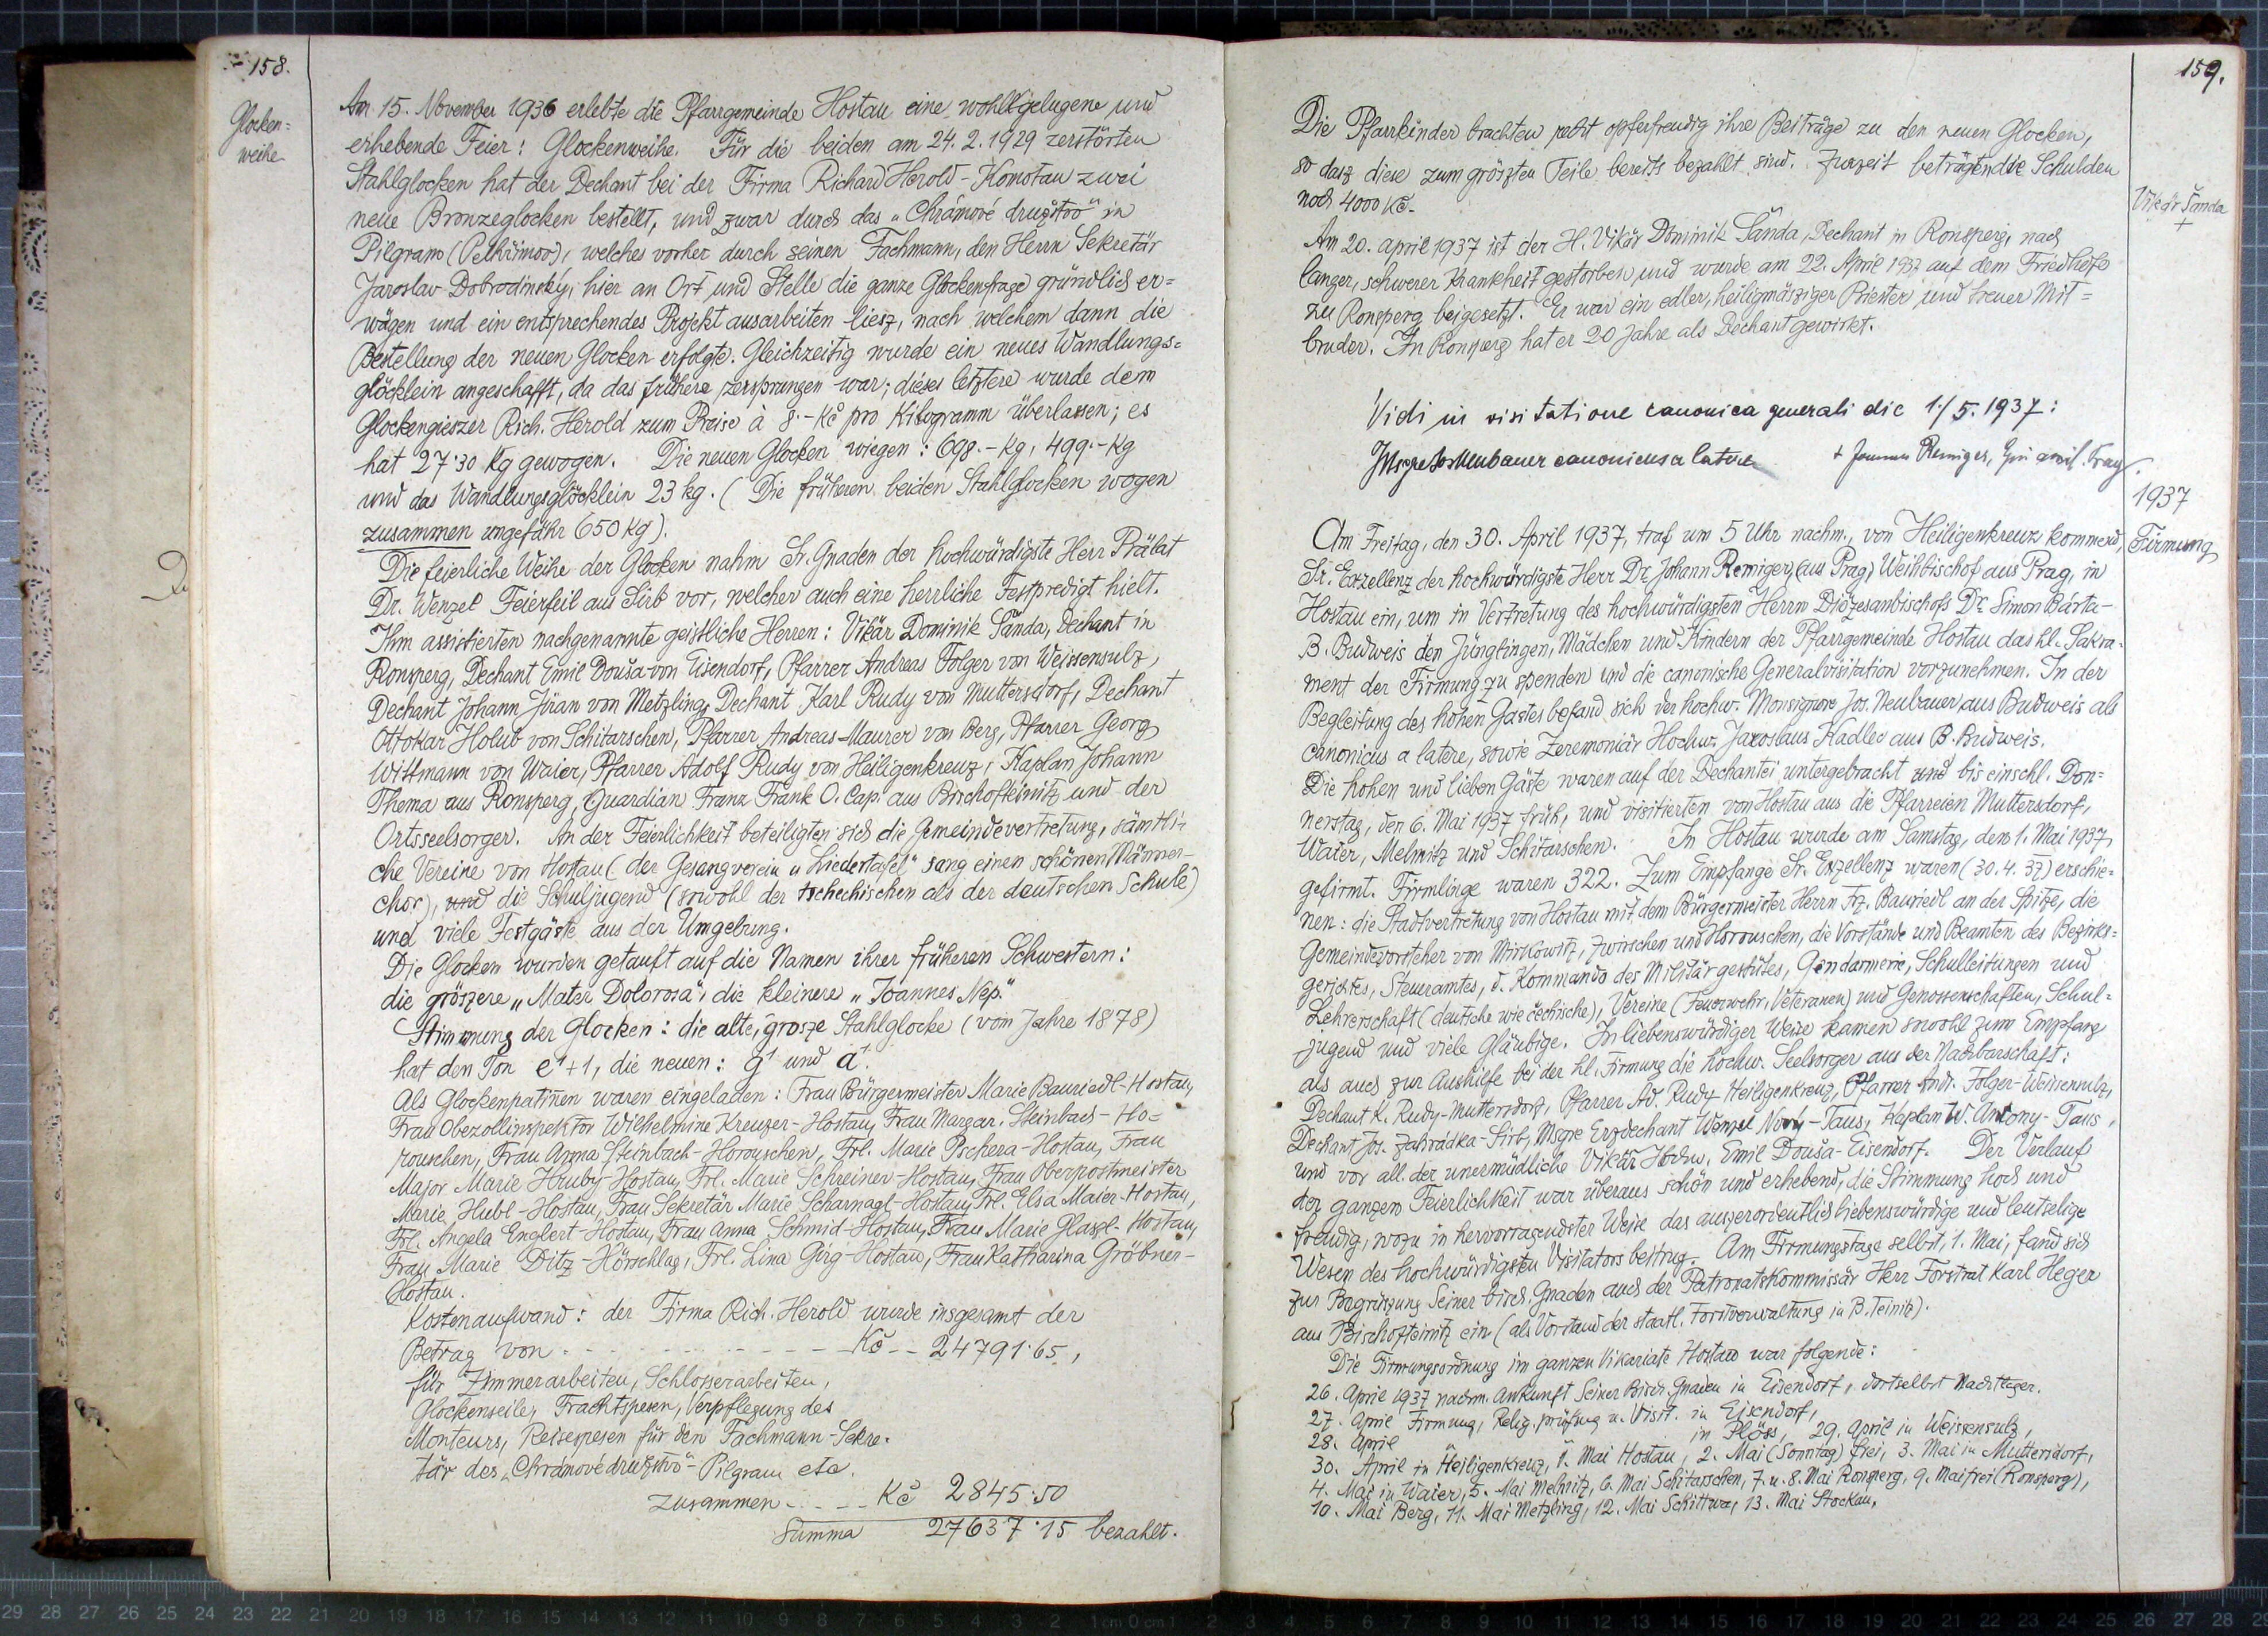 158.
Glocken=
weihe
Am 15. November 1936 erlebte die Pfarrgemeinde Hostau eine wohllgelugene und
erhebende Feier: Glockenweihe. Für die beiden am 24.2.1929 zerstörten
Stahlglocken hat der Dechant bei der Firma Richard Herold-Komotau zwei
neue Bronzeglocken bestellt, und zwar durch das „Chrámové družstvo" in
Pilgram (Pelhřimov), welches vorher durch seinen Fachmann, den Herrn Sekretär
Jaroslav Dobrodinský, hier an Ort und Stelle die ganze Glockenfrage gründlich er=
wägen und ein entsprechendes Projekt ausarbeiten liesz, nach welchem dann die
Bestellung der neuen Glocken erfolgte. Gleichzeitig wurde ein neues Wandlungs=
glöcklein angeschafft, da das frühere zersprungen war; dieses letztere wurde dem
Glockengieszer Rich. Herold zum Preise à 8.- Kč pro Kilogramm überlassen; es
hat 27·30 Kg gewogen. Die neuen Glocken wiegen: 698.- Kg, 499.- Kg
und das Wandlungsglöcklein 23 kg. (Die früheren beiden Stahlglocken wogen
zusammen ungefähr 650 Kg).
Die feierliche Weihe der Glocken nahm Sr. Gnaden der hochwürdigste Herr Prälat
Dr. Wenzel Feierfeil aus Sirb vor, welcher auch eine herrliche Festpredigt hielt.
Ihm assistierten nachgenannte geistliche Herren: Vikär Dominik Šanda, Dechant in
Ronsperg, Dechant Emil Douša von Eisendorf, Pfarrer Andreas Folger von Weissensulz,
Dechant Johann Jiran von Metzling, Dechant Karl Rudy von Muttersdorf, Dechant
Ottokar Holub von Schitarschen, Pfarrer Andreas Maurer von Berg, Pfarrer Georg
Wittmann von Waier, Pfarrer Adolf Rudy von Heiligenkreuz, Kaplan Johann
Thema aus Ronsperg, Guardian Franz Frank O. Cap. aus Bischofteinitz und der
Ortsseelsorger. An der Feierlichkeit beteiligten sich die Gemeindevertretung, sämtli-
che Vereine von Hostau (der Gesangverein „Liedertafel" sang einen schönen Männer-
chor), und die Schuljugend (sowohl der tschechischen als der deutschen Schule)
und viele Festgäste aus der Umgebung.
Die Glocken wurden getauft auf die Namen ihrer früheren Schwestern:
die gröszere „Mater Dolorosa", die kleinere „Joannes Nep."
Stimmung der Glocken: die alte, grosze Stahlglocke (vom Jahre 1878)
hat den Ton e¹+1, die neuen: g¹ und a¹.
Als Glockenpatinnen waren eingeladen: Frau Bürgermeister Marie Bauriedl-Hostau,
Frau Obezollinspektor Wilhelmine Kreuzer-Hostau, Frau Margar. Steinbach-Ho=
rouschen, Frau Anna Steinbach-Horouschen, Frl. Marie Pschera-Hostau, Frau
Major Marie Hruby-Hostau, Frl. Marie Schreiner-Hostau, Frau Oberpostmeister
Marie Hubl-Hostau, Frau Sekretär Marie Scharnagl-Hostau, Frl. Elsa Maier-Hostau,
Frl. Angela Englert-Hostau, Frau Anna Schmid-Hostau, Frau Marie Glaszl-Hostau,
Frau Marie Ditz-Hörschlag, Frl. Lina Girg-Hostau, Frau Katharina Gröbner-
Hostau.
Kostenaufwand: der Firma Rich. Herold wurde insgesamt der
Betrag von - - - - - - - - Kč - - 24791·65,
für Zimmerarbeiten, Schlosserarbeiten,
Glockenseile, Frachtspesen, Verpflegung des
Monteurs, Reisespesen für den Fachmann-Sekre-
tär des „Chrámové družstvo"-Pilgram etc.
zusammen - - - - Kč 2845·50
Summa 27637·15 bezahlt.
159.
Die Pfarrkinder brachten recht opferfreudig ihre Beiträge zu den neuen Glocken,
so dasz diese zum gröszten Teile bereits bezahlt sind. Zurzeit betragen die Schulden
noch 4000 Kč-
Vikär Šanda
†
Am 20. April 1937 ist der H. Vikär Dominik Šanda, Dechant in Ronsperg, nach
langer, schwerer Krankheit gestorben und wurde am 22. April 1937 auf dem Friedhofe
zu Ronsperg beigesetzt. Er war ein edler, heiligmäsziger Priester und treuer Mit=
bruder. In Ronsperg hat er 20 Jahre als Dechant gewirkt.
Vidi in visitatione canonica generali die 1./5. 1937:
Msgre Jos Neubauer canonicus a latere
+ Joannes Remiger, Epi auxil. Prag.
1937
Firmung
Am Freitag, den 30. April 1937, traf um 5 Uhr nachm., von Heiligenkreuz kommend,
Sr. Exzellenz der hochwürdigste Herr Dr. Johann Remiger, (aus Prag) Weihbischof aus Prag, in
Hostau ein, um in Vertretung des hochwürdigsten Herrn Diözesanbischofs Dr. Simon Bárta-
B. Budweis den Jünglingen, Mädchen und Kindern der Pfarrgemeinde Hostau das hl. Sakra-
ment der Firmung zu spenden und die canonische Generalvisitation vorzunehmen. In der
Begleitung des hohen Gastes befand sich der hochw. Monsignore Jos. Neubauer aus Budweis als
canonicus a latere, sowie Zeremoniär Hochw. Jaroslaus Kadlec aus B. Budweis.
Die hohen und lieben Gäste waren auf der Dechantei untergebracht und bis einschl. Don=
nerstag, den 6. Mai 1937 früh, und visitierten von Hostau aus die Pfarreien Muttersdorf,
Waier, Melmitz und Schitarschen. In Hostau wurde am Samstag, dem 1. Mai 1937,
gefirmt. Firmlinge waren 322. Zum Empfange Sr. Exzellenz waren (30.4.37) erschie=
nen: die Stadtvertretung von Hostau mit dem Bürgermeister Herrn Frz. Bauriedl an der Spitze, die
Gemeindevorsteher von Mirkowitz, Zwirschen und Horouschen, die Vorstände und Beamten des Bezirks=
gerichtes, Steueramtes, d. Kommando des Militärgestütes, Gendarmerie, Schulleitungen und
Lehrerschaft (deutsche wie čechische), Vereine (Feuerwehr, Veteranen) und Genossenschaften, Schul=
jugend und viele Gläubige. In liebenswürdiger Weise kamen sowohl zum Empfang
als auch zur Aushilfe bei der hl. Firmung die hochw. Seelsorger aus der Nachbarschaft:
Dechant K. Rudy-Muttersdorf, Pfarrer Ad. Rudy Heiligenkreuz, Pfarrer Andr. Folger-Weissensulz,
Dechant Jos. Zahrádka-Sirb, Msgre Erzdechant Wenzel Nový-Taus, Kaplan W. Antony-Taus,
und vor all. der unermüdliche Vikär Hochw. Emil Douša-Eisendorf. Der Verlauf
der ganzen Feierlichkeit war überaus schön und erhebend, die Stimmung hoch und
freudig, wozu in hervorragendster Weise das auszerordentlich liebenswürdige und leutselige
Wesen des hochwürdigsten Visitators beitrug. Am Firmungstage selbst, 1. Mai, fand sich
zur Begrüszung Seiner bisch. Gnaden auch der Patronatskommissär Herr Forstrat Karl Heger
aus Bischofteinitz ein (als Vorstand der staatl. Forstverwaltung in B. Teinitz).
Die Firmungsordnung im ganzen Vikariate Hostau war folgende:
26. April 1937 nachm. Ankunft Seiner Bisch. Gnaden in Eisendorf, dortselbst Nachtlager.
27. April Firmung, Relig. prüfung u. Visit. in Eisendorf,
28. April " in Plöss, 29. April in Weissensulz,
30. April in Heiligenkreuz, 1. Mai Hostau, 2. Mai (Sonntag) frei, 3. Mai in Muttersdorf,
4. Mai in Waier, 5. Mai Melmitz, 6. Mai Schitarschen, 7. u. 8. Mai Ronsperg, 9. Mai frei (Ronsperg),
10. Mai Berg, 11. Mai Metzling, 12. Mai Schittwa, 13. Mai Stockau.